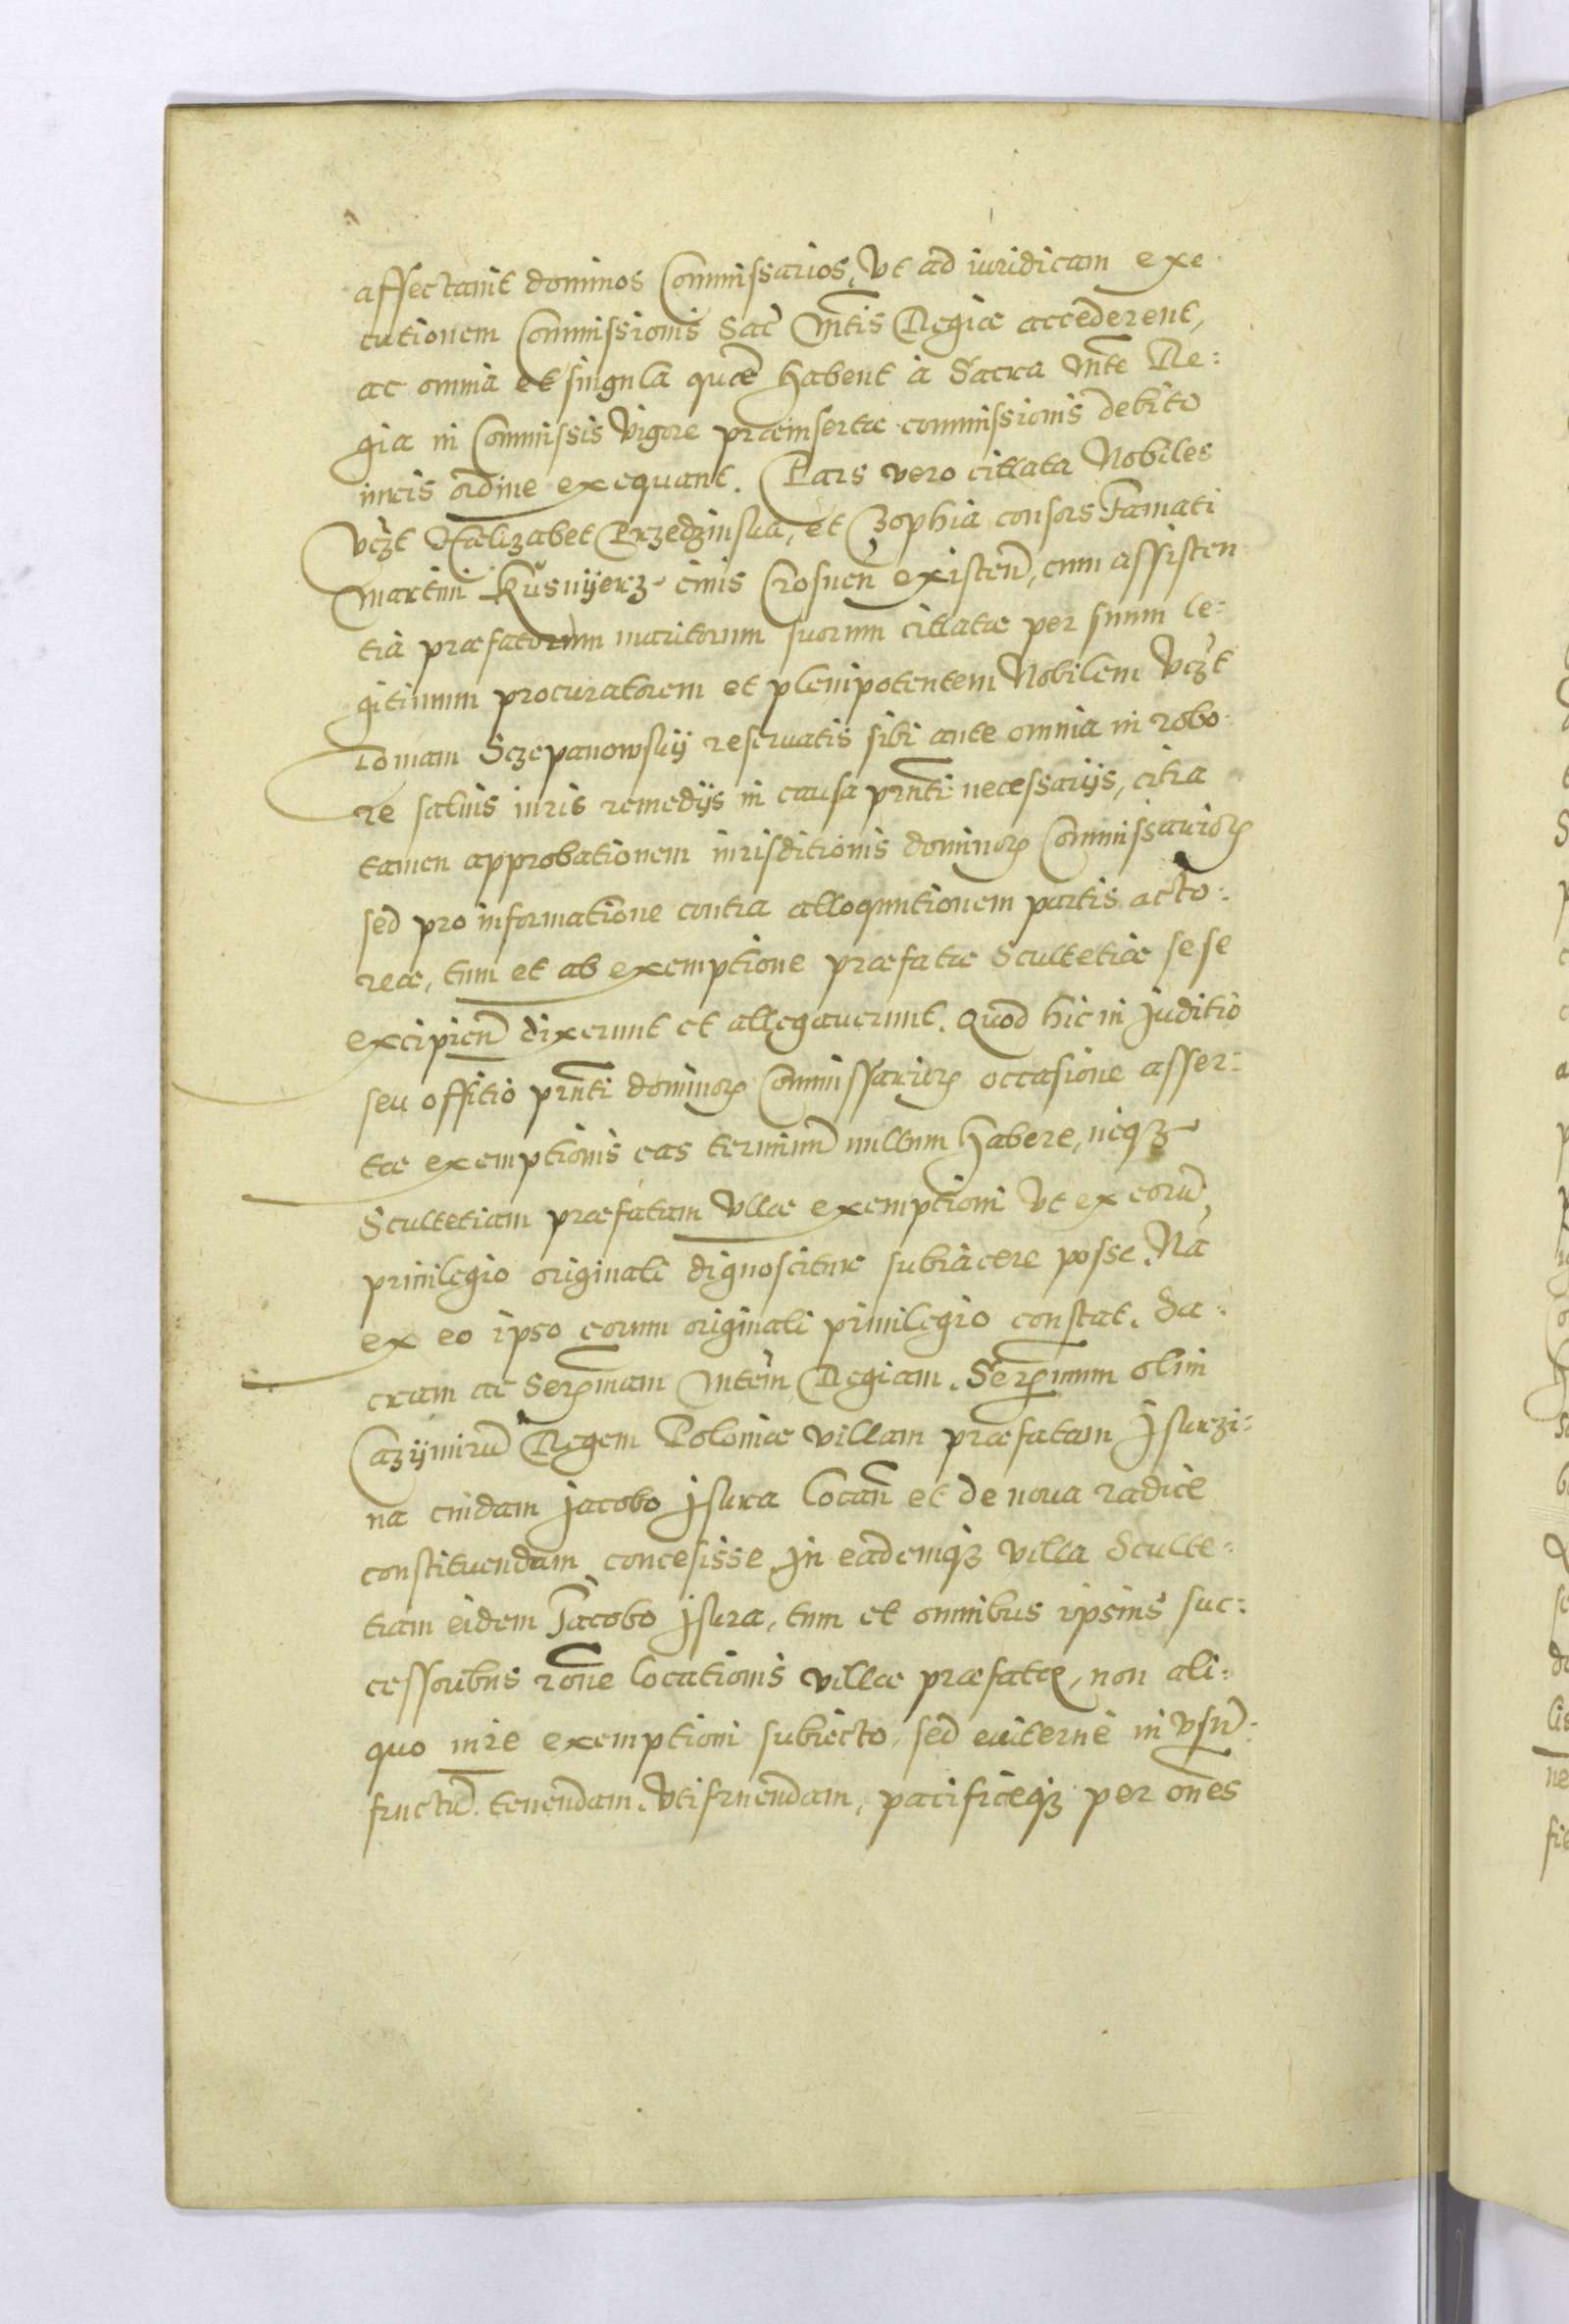 affectavit dominos Commissarios, Vt ad iuridicam exe
cutionem Commissionis Sac̃ Mtis Regiæ accederent,
ac omnia et singula quæ habent à Sacra Mte Re:
gia in Commissis Vigore præinsertæ commissionis debito
iuris ordine exequant. Pars vero cittata Nobiles
Vczt Halizabet Przedzinska, et Zophia consors Famati
Martini Kusnijerz civis Crosnen̄ existen̄, cum assisten
tia præfatorum maritorum suorum cittatæ per suum le:
gitimum procuratorem et plenipotentem Nobilem Vczt
Tomam Sczepanowskij reservatis sibi ante omnia in robo
re salvis iuris remedijs in causa prn̄ti necessarijs, citra
tamen approbationem iurisditionis dominoꝝ Commissarioꝝ
sed pro informatione contra alloquutionem partis acto:
reæ, tum et ab exemptione præfatæ Scultetiæ sese
excipien̄ dixerunt et allegaverunt. Quod hic in Juditio
seu offitio prn̄ti dominoꝝ Commissarioꝝ occasione asser:
tæ exemptionis eas terminū nullum habere, neqꝫ
Scultetiam præfatam Vllæ exemptioni Vt ex eorū
privilegio originali dignoscitur subiacere posse. Nā
ex eo ipso eorum originali privilegio constat. Sa:
cram ac Serꝫmam Mtem Regiam. Serꝫmum olim
Cazijmirū Regem Poloniæ villam præfatam Jskrzi:
na cuidam Jacobo Jskra locan̄ et de nova radice
constituendam concesisse In eademqꝫ villa Sculte:
tiam eidem Jacobo Jskra, tum et omnibus ipsius suc:
cessoribus rōne locationis villæ præfatæ, non ali:
quo iure exemptioni subiecto, sed eviternè in Vsū
fructū. tenendam. Vtifruendam, pacificeqꝫ per on̄es